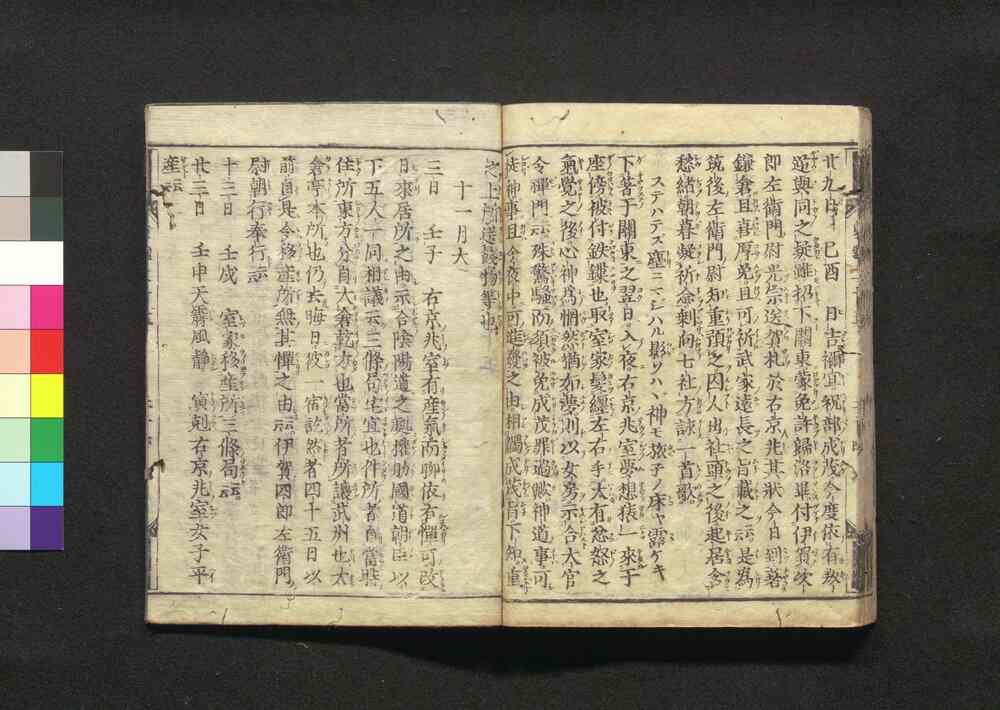 廿九日 己酉 日吉禰宜祝部成茂今度依有叛
逆與同之疑雖招下關東蒙免許歸洛畢付伊賀次
郎左衛門尉光宗送賀札於右京兆其狀今日到著
鎌倉且喜厚免且可祈武家遠長之旨載之云云是為
筑後左衛門尉知重預之囚人出社頭之後起居含
愁緒朝暮凝祈念剩向七社方詠一首歌
ステハテス塵ニマジハル影ソハヽ神モ旅子ノ床ヤ露ケキ
下著于關東之翌日入夜右京兆室夢想猿一來于
座傍被付鉄鏁也取室家髮纒左右手大有忿怒之
氣覺之後心神為惘然猶如夢則以女房示合大官
令禪門云云殊驚騷防須被免成茂罪過歟神道事可
恐神事且今夜中可進發之由相觸成茂旨下知重
之上所送餞物等也
十一月大
三日 壬子 右京兆室有産氣而聊依有憚可改
日來居所之由示合陰陽道之輩權助國道朝臣以
下五人一同相議云三條局宅宜也件所者自當時
住所東方分自大倉乾方也當所者所讓武州也大
倉亭本所也仍去晦日彼一宿訖然者四十五日以
前自是令移産所無其憚之由云云伊賀四郎左衛門
尉朝行奉行云云
十三日 壬戌 室家移産所三條局云云
廿三日 壬申天霽風静 寅剋右京兆室女子平
産云云